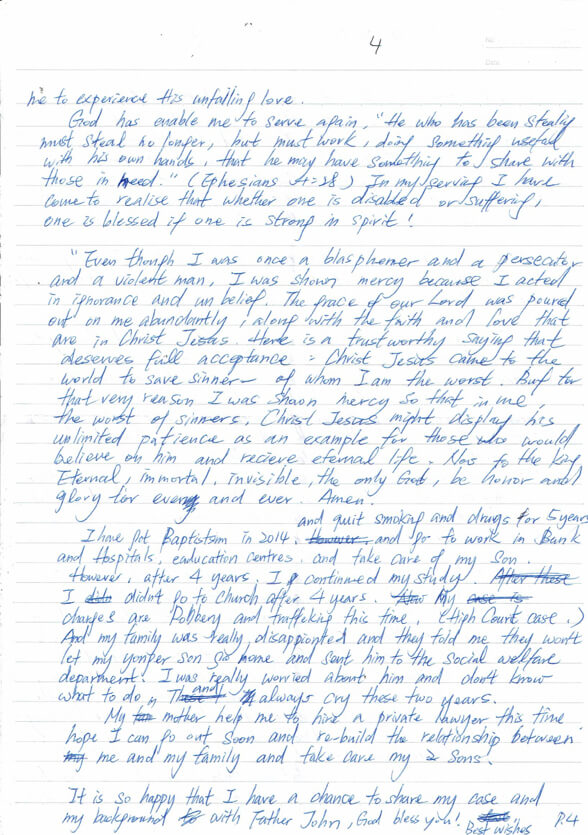 4
No.
Date
me to experience His unfailing love.
God has enable me to serve again, "He who has been stealing
must steal no longer, but must work, doing something useful
with his own hands, that he may have something to share with
those in need." (Ephesians 4:28) In my serving I have
come to realise that whether one is disabled or suffering,
one is blessed if one is strong in spirit!
"Even though I was once a blasphemer and a persecutor
and a violent man, I was shown mercy because I acted
in ignorance and unbelief. The grace of our Lord was poured
out on me abundantly, along with the faith and love that
are in Christ Jesus. Here is a trustworthy saying that
deserves full acceptance: Christ Jesus came to the
world to save sinner- of whom I am the worst. But for
that very reason I was shown mercy so that in me
the worst of sinners, Christ Jesus might display his
unlimited patience as an example for those who would
believe on him and recieve eternal life. Now to the King
Eternal, immortal, invisible, the only God, be honor and
glory for every and ever. Amen.
and quit smoking and drugs for 5 years
I have got Baptistism in 2014. However, and go to work in Bank
and Hospitals, eaducation centres. and take care of my Son.
However, after 4 years. I continued my study. After these
I didn't go to church after 4 years. My case is
charges are Robbery and traffeking this time. (High Court case.)
And my family was really disappionted and they told me they won't
let my yonger son go home and sent him to the social welfare
deparment. I was really worried about him and don't know
what to do, and I always cry these two years.
My mother help me to hire a private lawyer this time
hope I can go out soon and re-build the relationship between
my me and my family and take care my 2 Sons.
It is so happy that I have a chance to share my case and
my background to with Father John, God bless you!
Best wishes
P.4